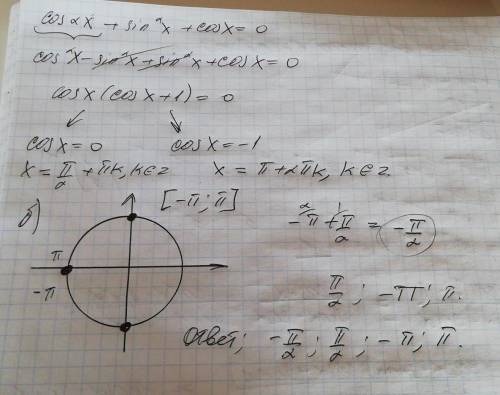 cos2x + sin²x + cosx = 0
cos²x - sin²x + sin²x + cosx = 0
cosx (cosx + 1) = 0
cosx = 0 cosx = -1
x = π/2 + πk, k∈z x = π + 2πk, k∈z.
б) [-π; π]
π
-π
-π + π/2 = -π/2
2 1
π/2; -π; π.
Ответ; -π/2; π/2; -π; π.